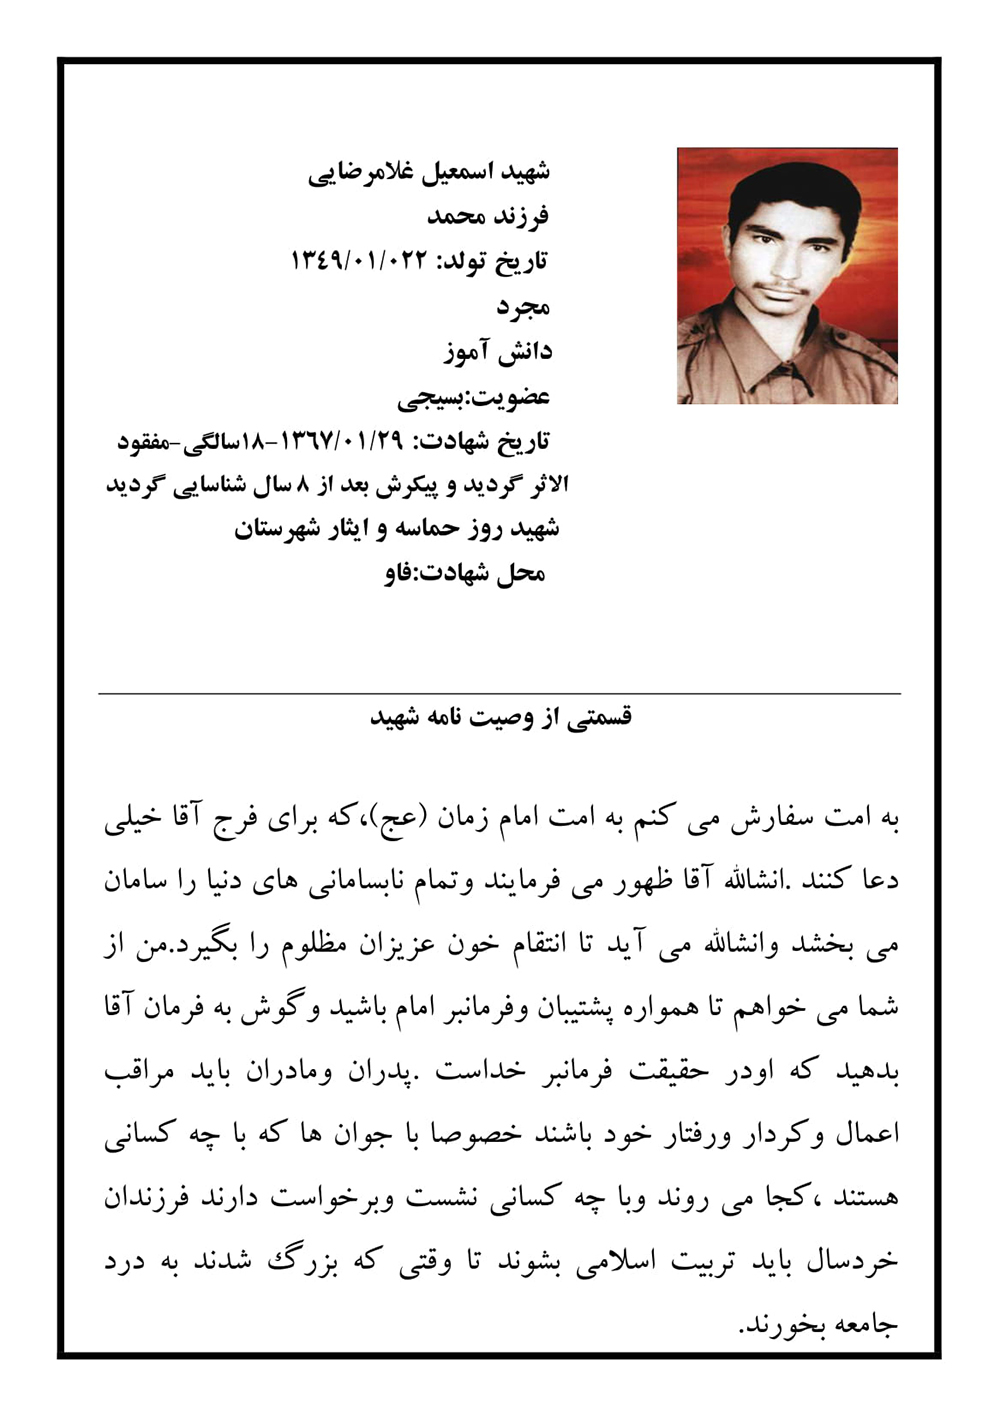 شهید اسمعیل غلامرضایی
فرزند محمد
تاریخ تولد: ۱۳٤۹/۰۱/۰۲۲
مجرد
دانش آموز
عضویت:بسیجی
تاریخ شهادت: ۱۳٦۷/۰۱/۲۹-۱۸سالگی-مفقود
الاثر گردید و پیکرش بعد از ۸ سال شناسایی گردید
شهید روز حماسه و ایثار شهرستان
محل شهادت:فاو
قسمتی از وصیت نامه شهید
به امت سفارش می کنم به امت امام زمان (عج)،که برای فرج آقا خیلی
دعا کنند .انشالله آقا ظهور می فرمایند وتمام نابسامانی های دنیا را سامان
می بخشد وانشالله می آید تا انتقام خون عزیزان مظلوم را بگیرد.من از
شما می خواهم تا همواره پشتیبان وفرمانبر امام باشید وگوش به فرمان آقا
بدهید که اودر حقیقت فرمانبر خداست .پدران ومادران باید مراقب
اعمال وکردار ورفتار خود باشند خصوصا با جوان ها که با چه کسانی
هستند ،کجا می روند وبا چه کسانی نشست وبرخواست دارند فرزندان
خردسال باید تربیت اسلامی بشوند تا وقتی که بزرگ شدند به درد
جامعه بخورند.